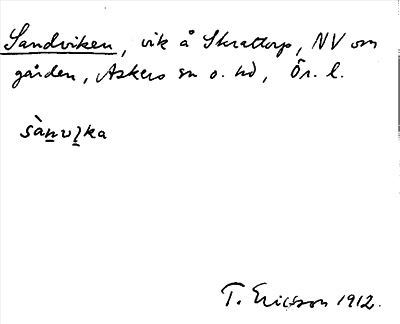 Sandviken, vik å Skrattorp, NV om
gården, Askers sn o. hd, Ör. l.
sànvi̱ka
T. Ericsson 1912.